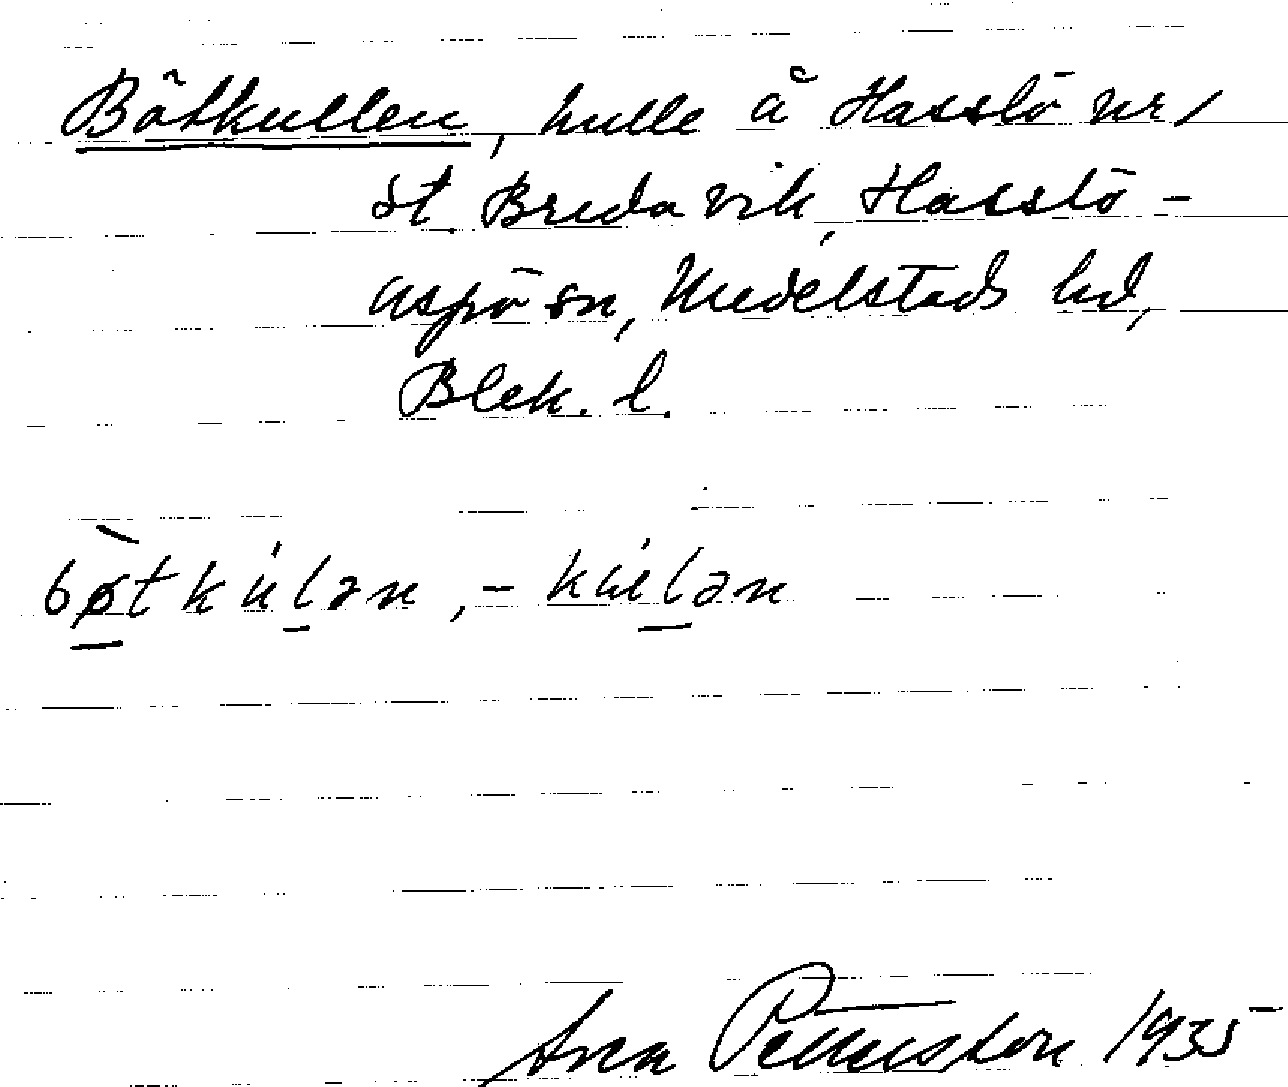 Bötkullen, kulle å Hasslö nr 1
öt. Bredavik, Hasslö-
aspö sn, Medelstads hd,
Blek. l.
bø̀tkúlən, -kúlən
Sven Pettersson 1935